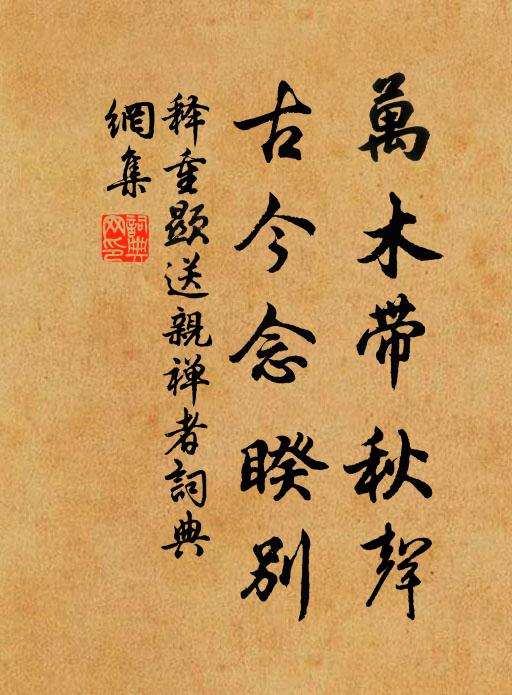 萬木带秋聲
古今念睽別
释重顯送親禅者詞典
網集
詞典網印